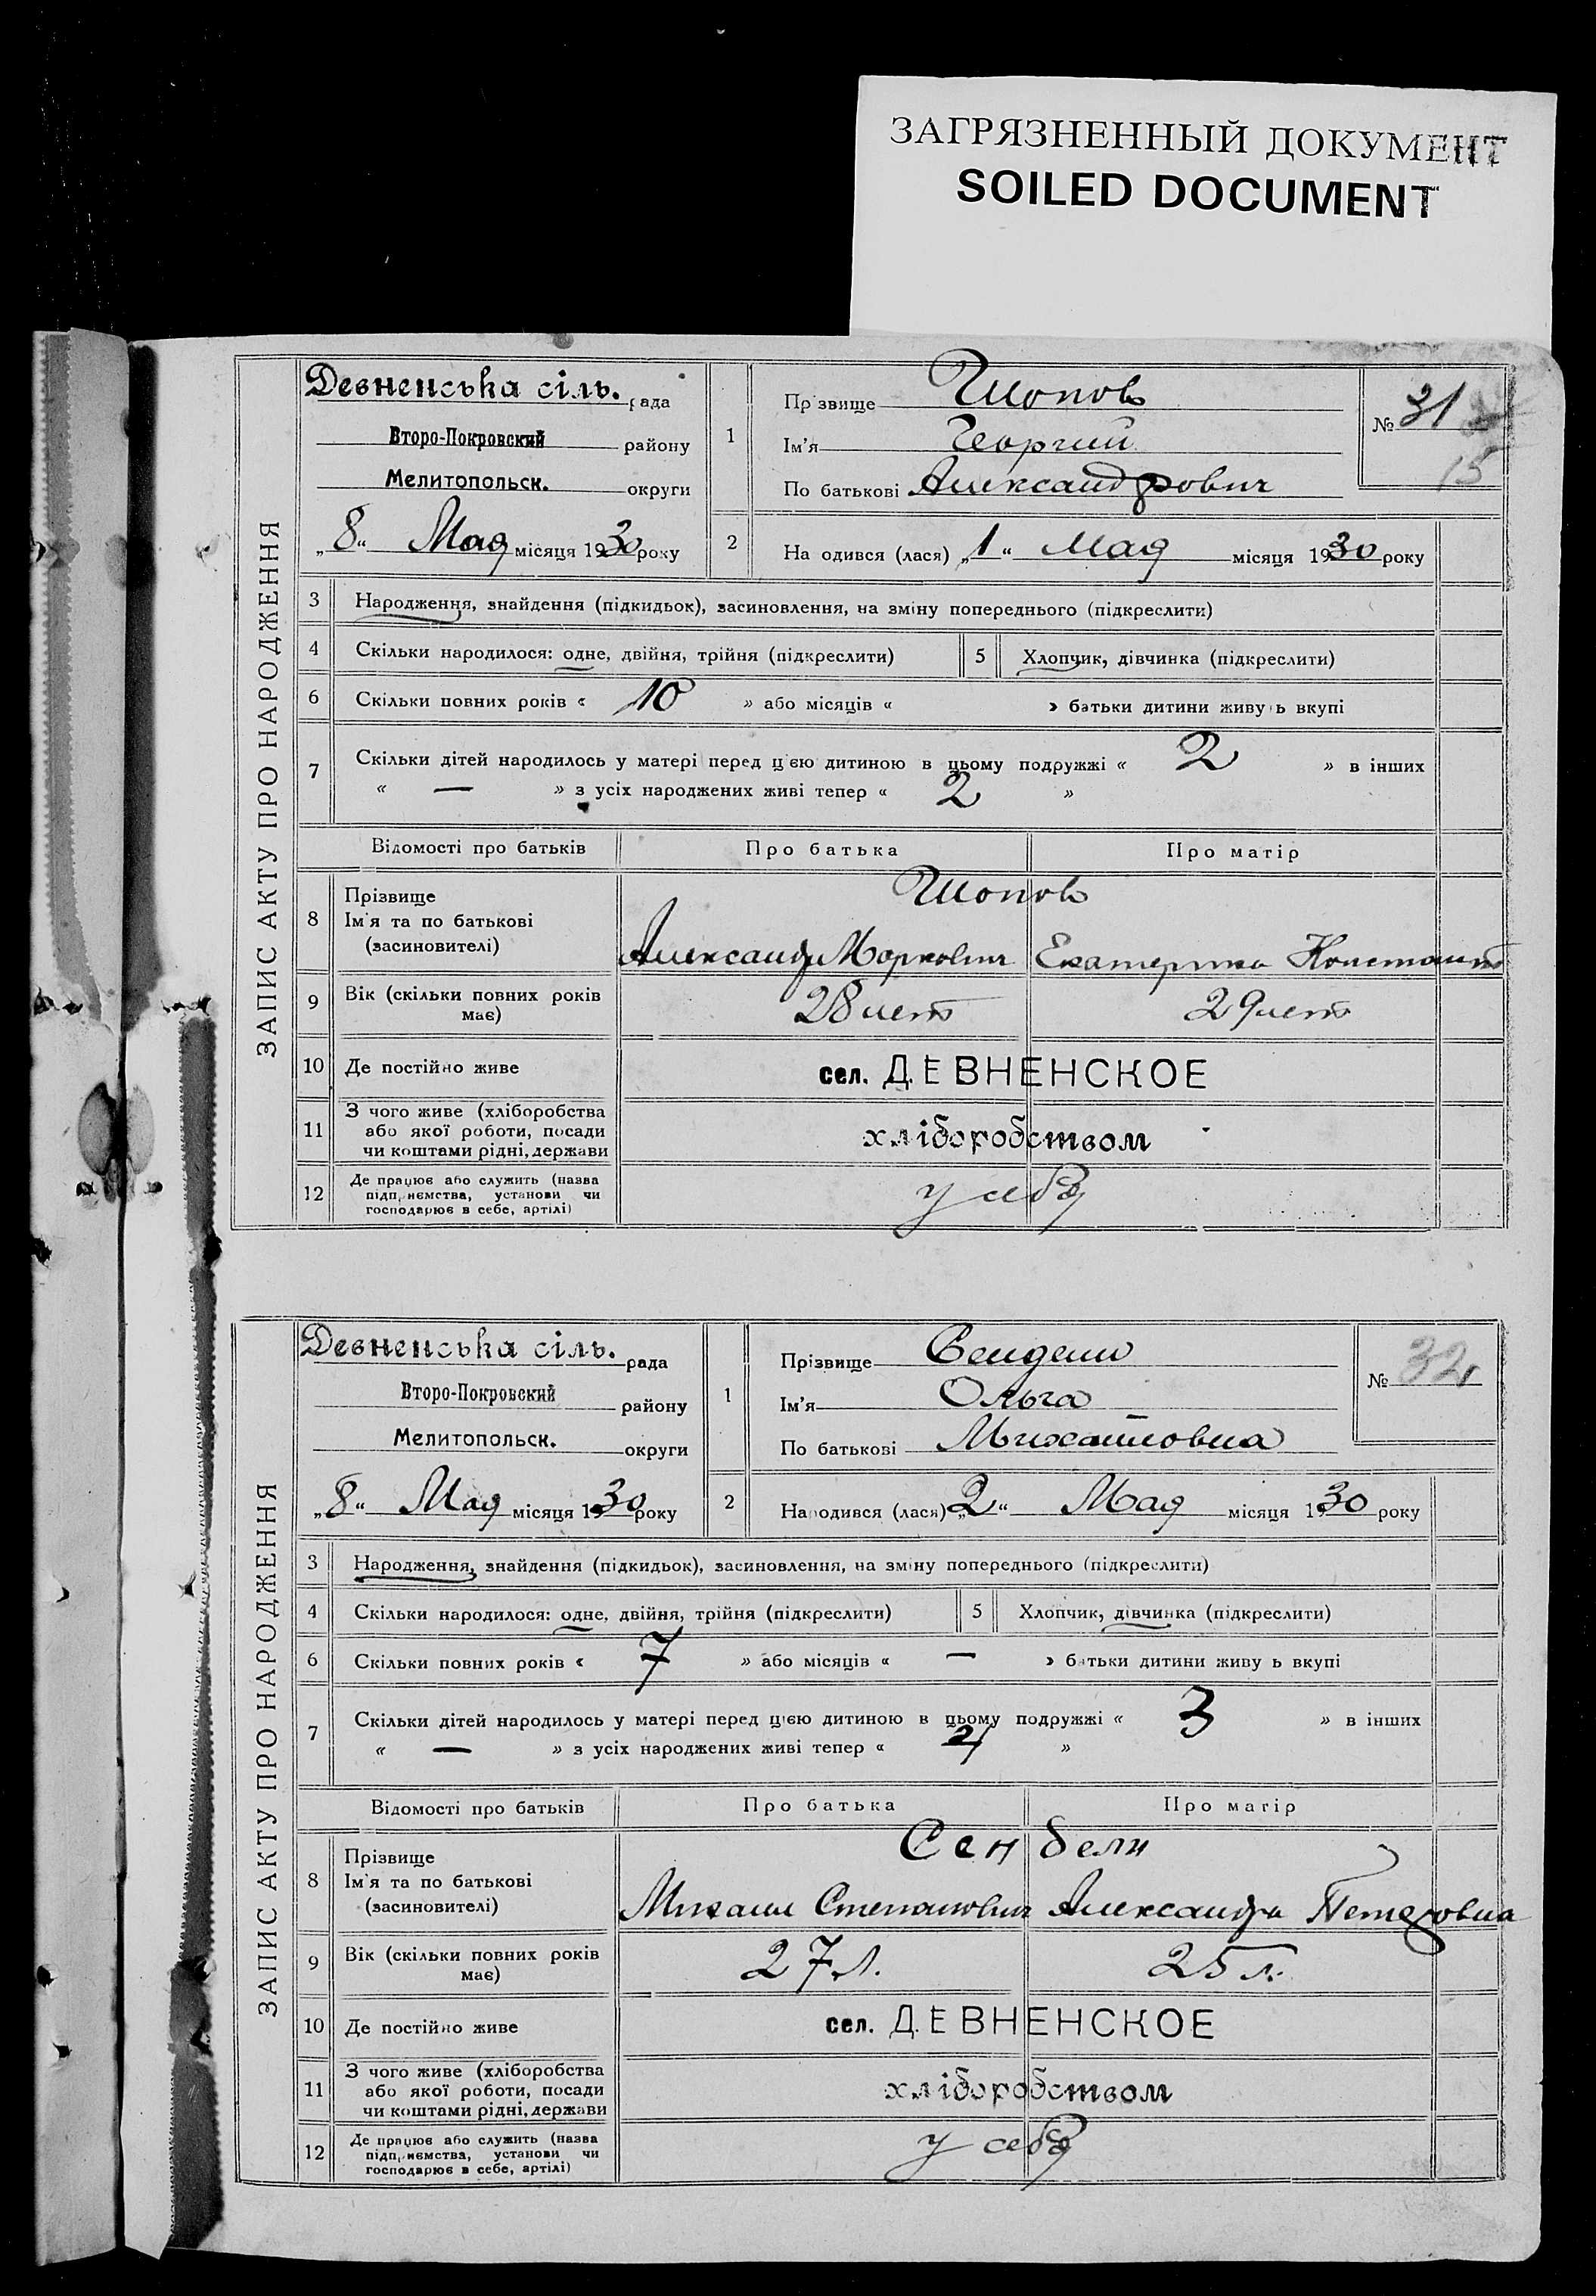 ЗАГРЯЗНЕННЫЙ ДОКУМЕНТ
SOILED DOCUMENT
ЗАПИС АКТУ ПРО НАРОДЖЕННЯ
Девненська сіль. рада
Второ-Покровский району
Мелитопольск. округи
„8“ Мая місяця 1930 року
1
Прізвище
Ім'я Георгий
По батькові Александрович
№ 31
15
2
На одився (лася) „1“ Мая місяця 1930 року
3 Народження, знайдення (підкидьок), засиновлення, на зміну попереднього (підкреслити)
4 Скільки народилося: одне, двійня, трійня (підкреслити) 5 Хлопчик, дівчинка (підкреслити)
6 Скільки повних років « 10 » або місяців « » батьки дитини живу ь вкупі
7 Скільки дітей народилось у матері перед цією дитиною в цьому подружжі « 2 » в інших
« — » з усіх народжених живі тепер « 2 »
Відомості про батьків Про батька Про матір
8 Прізвище
Ім'я та по батькові
(засиновителі)
Александр Маркович Екатерина Констант
9 Вік (скільки повних років має) 28 лет 29 лет
10 Де постійно живе сел. ДЕВНЕНСКОЕ
11 З чого живе (хліборобства
або якої роботи, посади
чи коштами рідні, держави
хліборобством
12 Де працює або служить (назва
підприємства, установи чи
господарює в себе, артілі)
у себя
ЗАПИС АКТУ ПРО НАРОДЖЕННЯ
Девненська сіль. рада
Второ-Покровский району
Мелитопольск. округи
„8“ Мая місяця 1930 року
1
Прізвище
Ім'я Ольга
По батькові Михайловна
№ 32
2
Народився (лася) „2“ Мая місяця 1930 року
3 Народження, знайдення (підкидьок), засиновлення, на зміну попереднього (підкреслити)
4 Скільки народилося: одне, двійня, трійня (підкреслити) 5 Хлопчик, дівчинка (підкреслити)
6 Скільки повних років « 7 » або місяців « — » батьки дитини живу ь вкупі
7 Скільки дітей народилось у матері перед цією дитиною в цьому подружжі « 3 » в інших
« — » з усіх народжених живі тепер « »
Відомості про батьків Про батька Про матір
8 Прізвище
Ім'я та по батькові
(засиновителі)
Сен бели
Михаил Степанович Александра Петровна
9 Вік (скільки повних років має) 27 л. 25 л.
10 Де постійно живе сел. ДЕВНЕНСКОЕ
11 З чого живе (хліборобства
або якої роботи, посади
чи коштами рідні, держави
хліборобством
12 Де працює або служить (назва
підприємства, установи чи
господарює в себе, артілі)
у себя